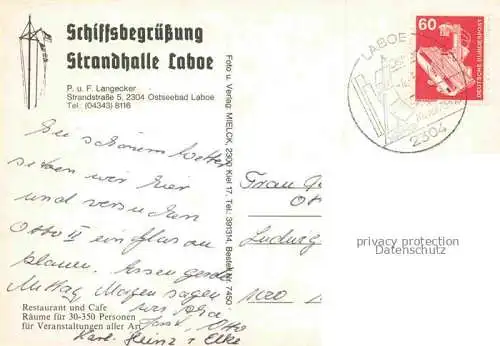 Schiffsbegrüßung
Strandhalle Laboe
P. u. F. Langecker
Strandstraße 5, 2304 Ostseebad Laboe
Tel. (04343) 8116
Bei schönem Wetter
sitzen wir hier
und
Otto IV ein
blauen. Essen gerade
Mittag. Morgen sagen
wir
Otto
Karl-Heinz + Elke
Restaurant und Cafe
Räume für 30-350 Personen
für Veranstaltungen aller Art
Foto u. Verlag: MIELCK, 2300 Kiel 17, Tel.: 391314, Bestell-Nr. 7450
LABOE
2304
60
DEUTSCHE BUNDESPOST
Frau
Ludwig
1000
privacy protection
Datenschutz